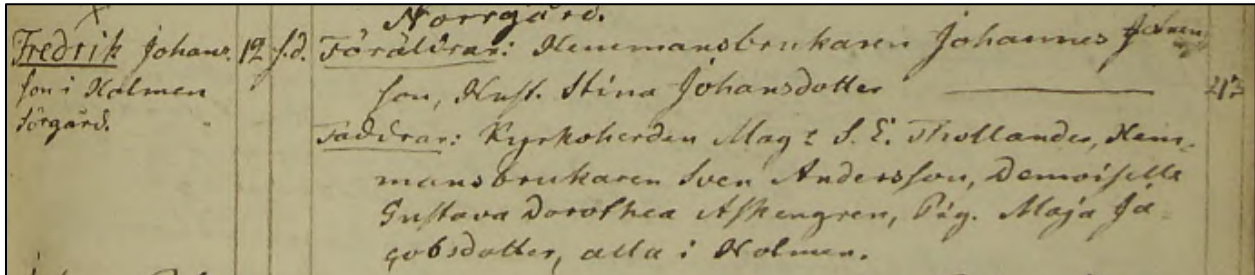 Norrgård.
Fredrik Johans- 12 s.d. Föräldrar: Hemmansbrukaren Johannes Johan
son i Holmen son, Hust. Stina Johansdotter
Sörgård.
Faddrar: Kyrkoherden Mag: S. E. Thollander, Hem-
mansbrukaren Sven Andersson, Demoiselle
Gustava Dorothea Askengren, Pig. Maja Ja
cobsdotter, alla i Holmen.